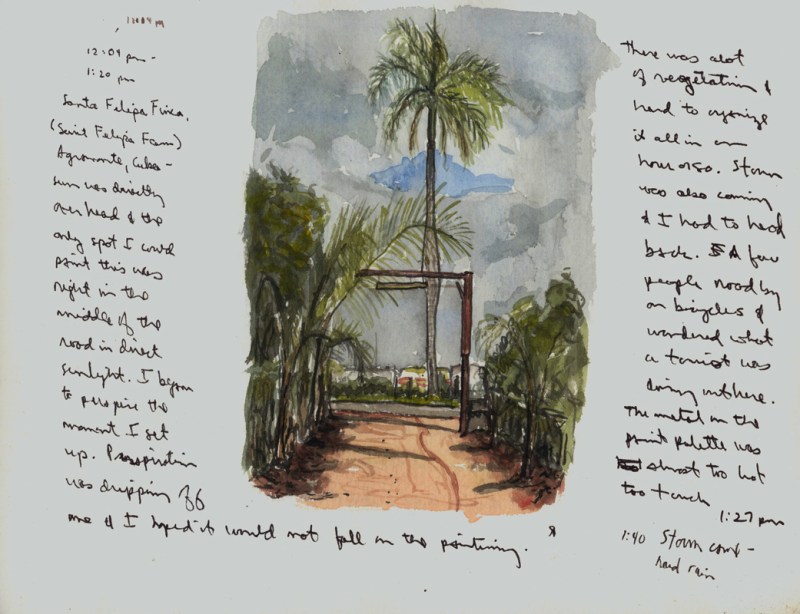 12:04 pm
12:04 pm -
1:20 pm
Santa Felipa Finca,
(Saint Felipa Farm)
Agramonte, Cuba -
sun was directly
over head & the
only spot I could
paint this was
right in the
middle of the
road in direct
sunlight. I began
to perspire the
moment I set
up. Perspiration
was dripping off
me & I hoped it would not fall on the painting.
There was alot
of vegetation &
hard to organize
it all in an
hour or so. Storm
was also coming
& I had to head
back. A few
people rood by
on bicycles &
wondered what
a tourist was
doing out here.
The metal on the
paint palette was
almost too hot
too touch
1:27 pm
1:40 Storm came -
hard rain